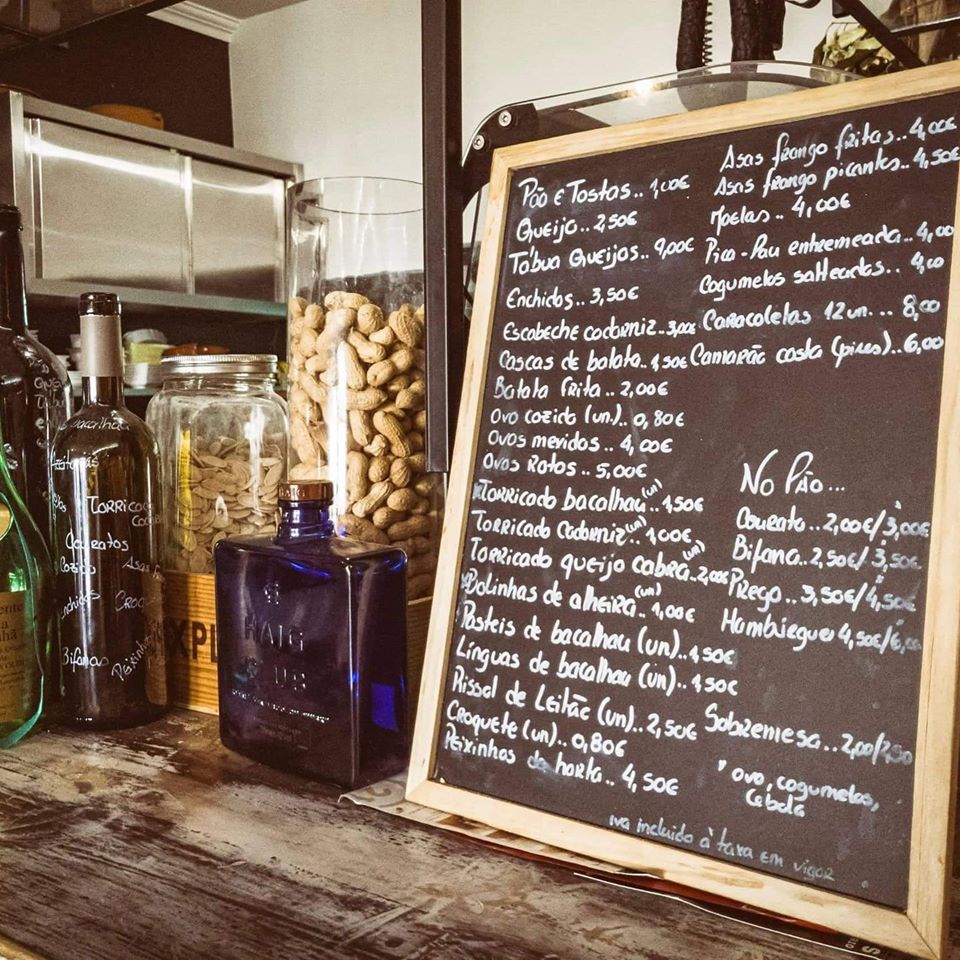 Pão e Tostas.. 1,00€
Queijo.. 2,50€
Tábua Queijos.. 9,00€
Enchidos.. 3,50€
Escabeche codorniz.. 3,00€
Cascas de batata.. 1,50€
Batata frita.. 2,00€
Ovo cozido (un.).. 0,80€
Ovos mexidos.. 4,00€
Ovos Rotos.. 5,00€
Torricado bacalhau (un).. 1,50€
Torricado Codorniz (un).. 1,00€
Torricado queijo cabra (un).. 2,00€
Bolinhas de alheira.. (un) 1,00€
Pasteis de bacalhau (un).. 1,50€
Linguas de bacalhau (un).. 1,50€
Rissol de Leitão (un).. 2,50€
Croquete (un).. 0,80€
Peixinhos da horta.. 4,50€
Asas frango fritas.. 4,00€
Asas frango picantes.. 4,50€
Moelas.. 4,00€
Pica-Pau entremeada.. 4,00
Cogumelos salteados.. 4,00
Caracoletas 12un... 8,00
Camarão costa (pires).. 6,00
No Pão...
Courato.. 2,00€/3,00€
Bifana.. 2,50€/3,50€
Prego.. 3,50€/4,50€
Hambúrguer 4,50€/6,00€
Sobremesa.. 2,00/2,50
* ovo, cogumelos,
cebola
iva incluido à taxa em vigor
HAIG
CLUB
XPL
bacalhau
Torricado
Couratos
Asas
Enchidos
Croque
Bifanas
Peixinhos